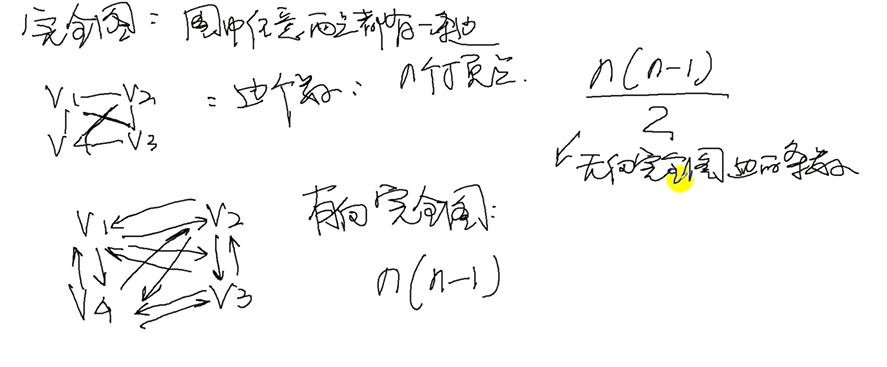 完全图：图中任意两点都有一条边
V1 V2
V4 V3
= 边个数： n个顶点. n(n-1)
2
↙无向完全图边的条数
V1 V2
V4 V3
有向完全图：
n(n-1)